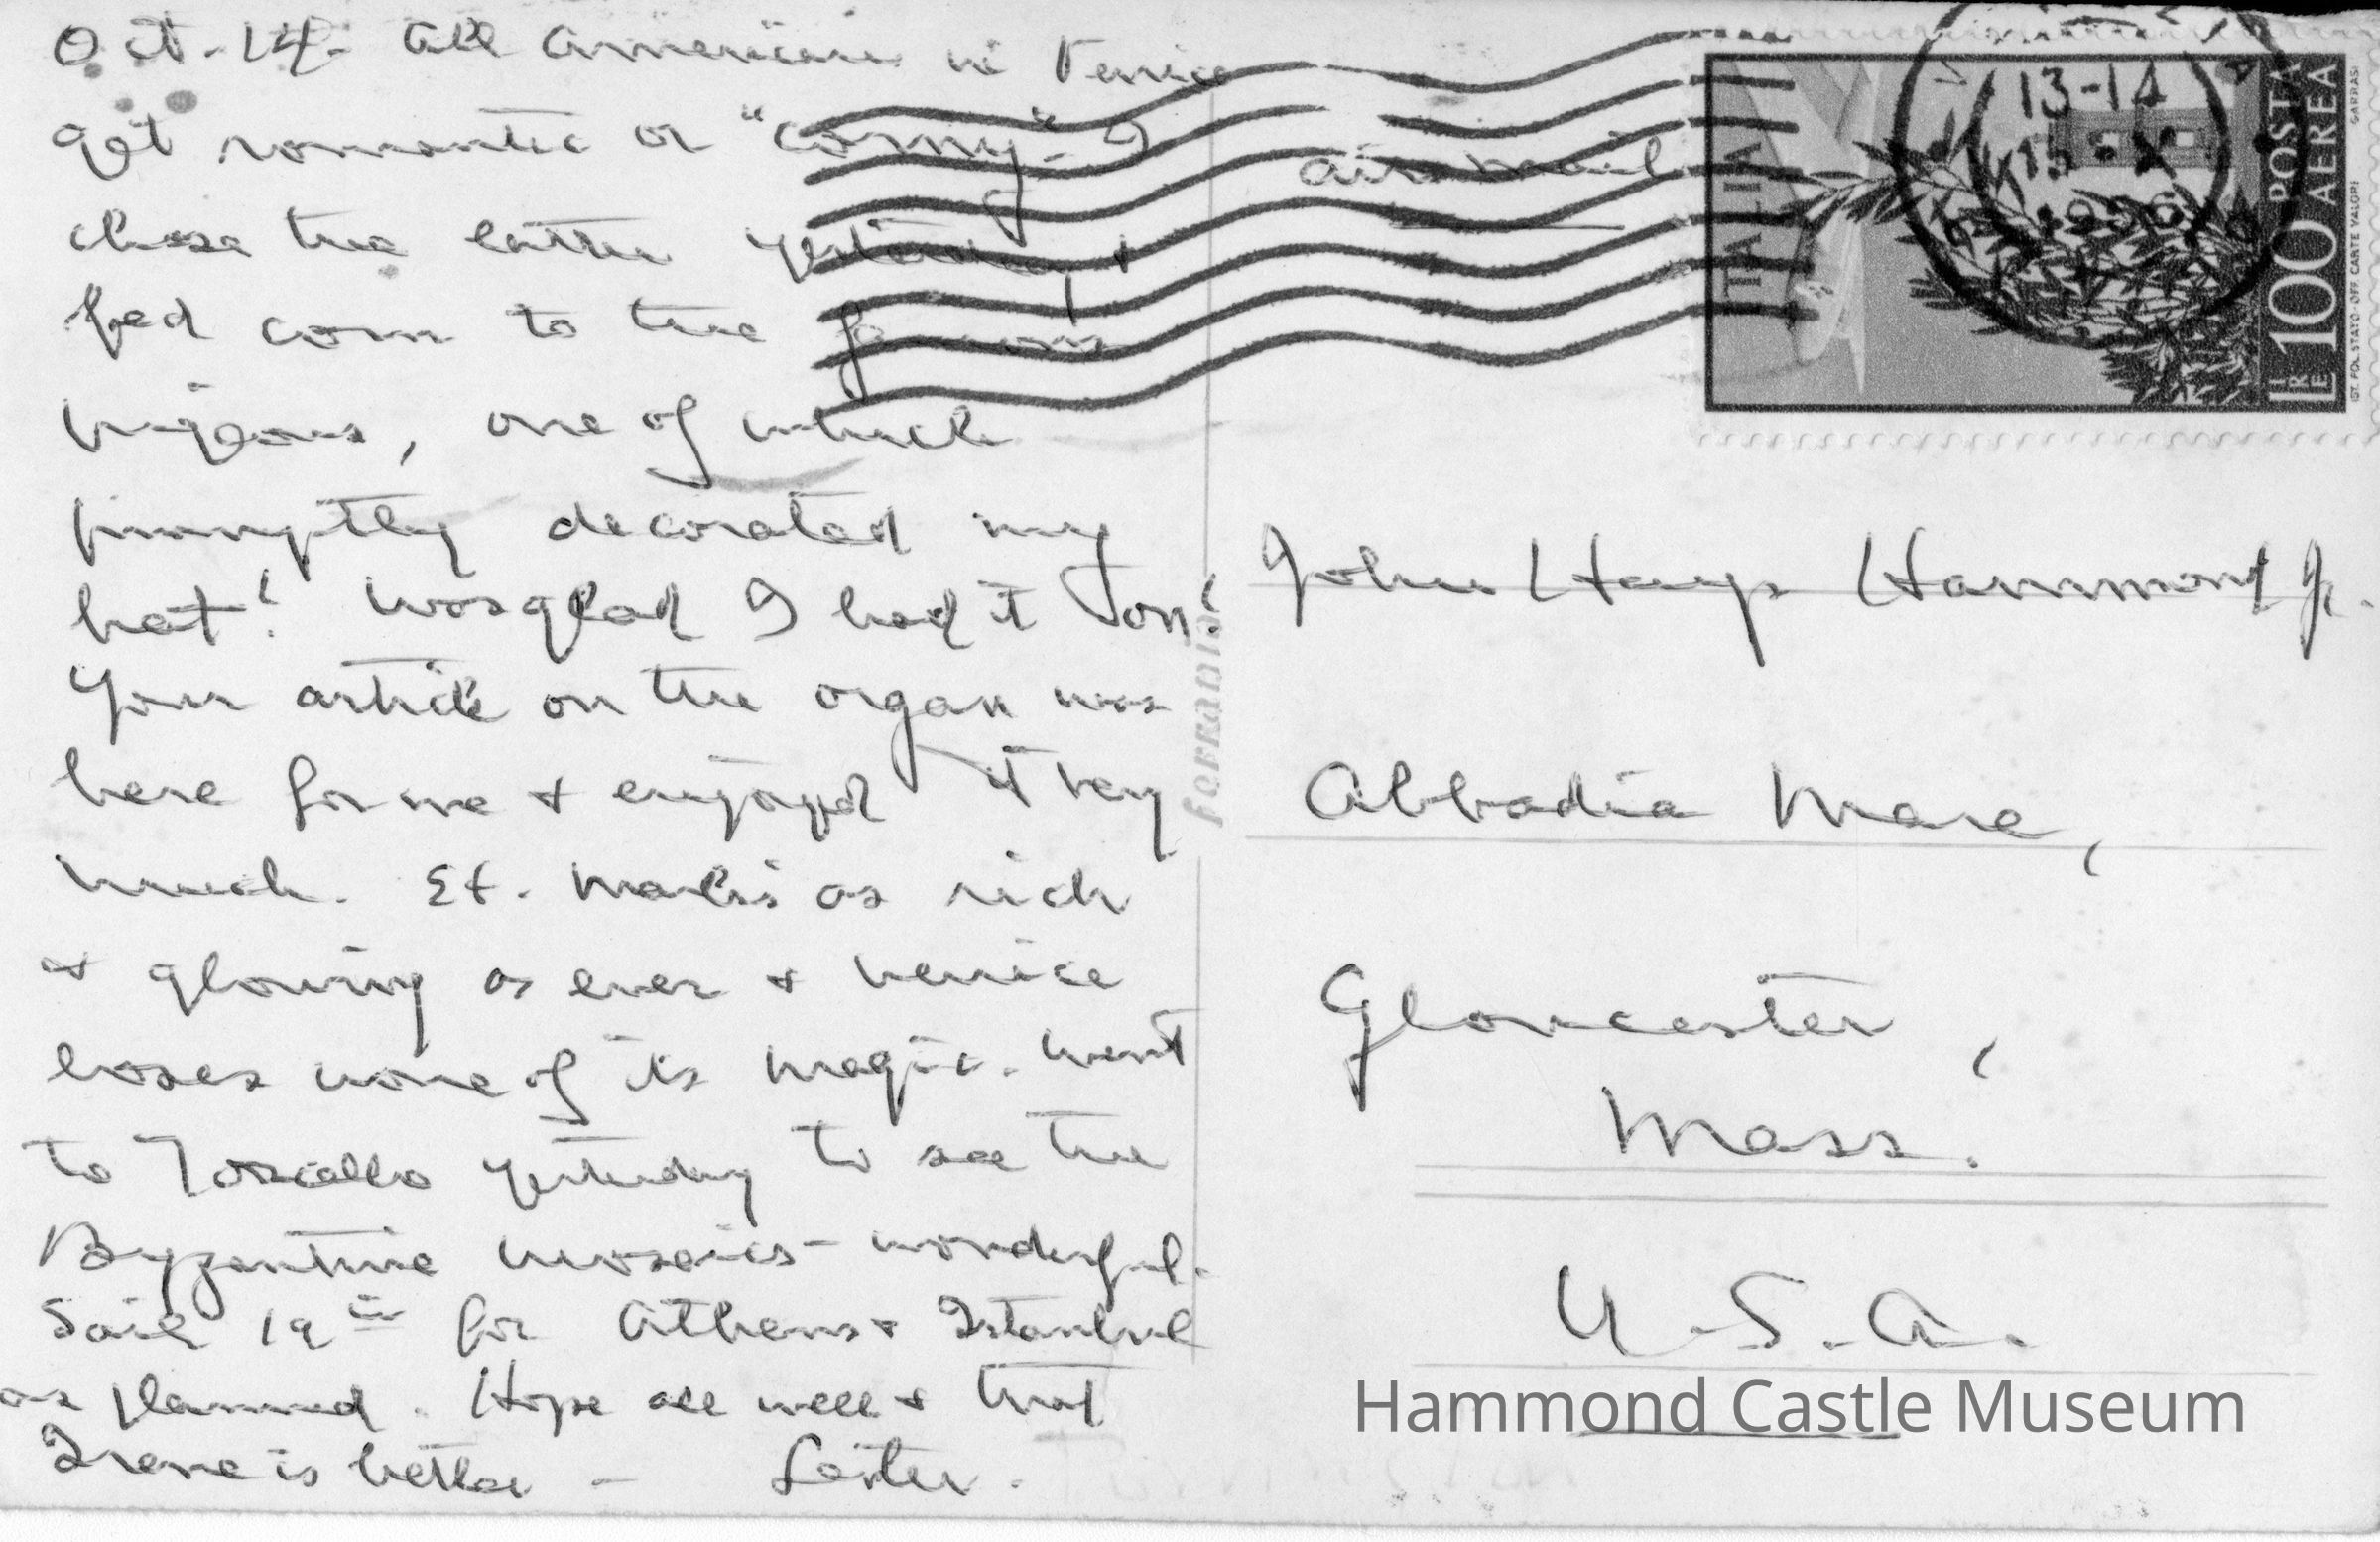 Oct. 14. All Americans in Venice
get romantic or "corny". I
chose the latter yesterday &
fed corn to the famous
pigeons, one of which
promptly decorated my
hat! Was glad I had it on!
Your article on the organ was
here for me & enjoyed it very
much. St. Mark's as rich
& glowing as ever & Venice
loses none of its magic. Went
to Torcello yesterday to see the
Byzantine mosaics - wonderful.
Sail 19th for Athens & Istanbul
as planned. Hope all well & that
Irene is better - Lester.
ferrania
air mail
John Hays Hammond Jr.
Abbadia Mare,
Gloucester,
Mass.
U.S.A.
ITALIA
13-14
15 X
1956
POSTA
AEREA
LIRE 100
IST. POL. STATO - OFF. CARTE VALORI
Hammond Castle Museum